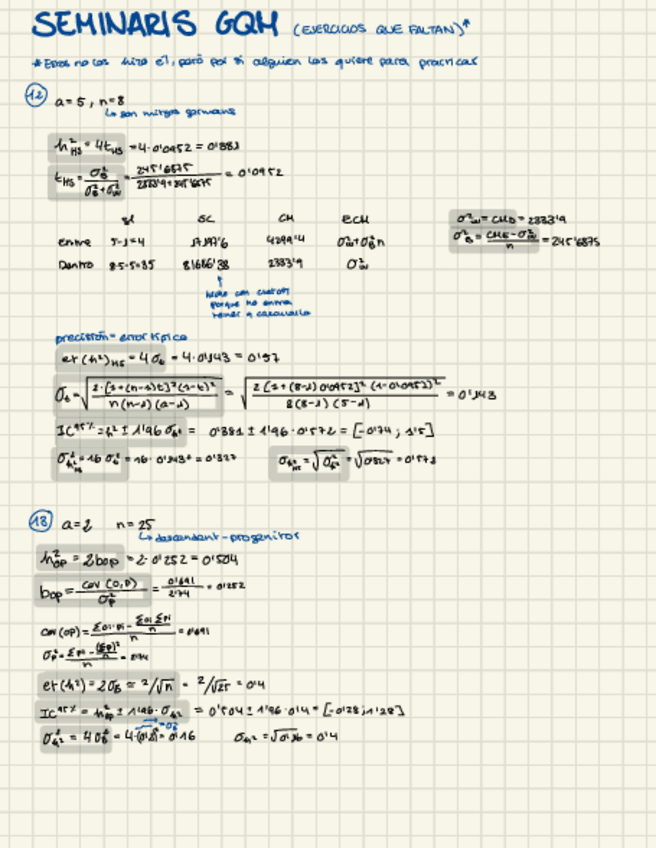 SEMINARIS GQM (EJERCICIOS QUE FALTAN)*
*Estos no los hizo él, paró por si alguien los quiere para practicar
12 a=5, n=8
↳ son mitges germans
h²HS = 4tHS = 4·0'0952 = 0'381
tHS = σ²B / (σ²B+σ²W) = 245'6875 / (2333'9+245'6875) = 0'0952
gl SC CM ECM
Entre 5-1=4 17197'6 4299'4 σ²w+σ²B n
Dentro 8·5-5=35 81686'38 2333'9 σ²w
σ²w = CMD = 2333'9
σ²B = (CME-σ²w) / n = 245'6875
porque no
precisión = error típico
et(h²)HS = 4σt = 4·0'143 = 0'57
σt = √(2·[1+(n-1)t]²(1-t)² / n(n-1)(a-1)) = √(2[1+(8-1)0'0952]²(1-0'0952)² / 8(8-1)(5-1)) = 0'143
IC95% = h² ± 1'96 σh² = 0'381 ± 1'96·0'572 = [-0'74 ; 1'5]
σ²h²HS = 16 σ²t = 16·0'143² = 0'327 σh²HS = √σ²h² = √0'327 = 0'572
13 a=2 n=25
↳ descendent-progenitor
h²OP = 2bOP = 2·0'252 = 0'504
bOP = cov(O,P) / σ²P = 0'691 / 2'74 = 0'252
cov(OP) = (Σoi·pi - Σoi Σpi / n) / n = 0'691
σ²P = (Σpi - (Σp)² / n) / n = 2'74
et(h²) = 2σB ≃ 2/√n = 2/√25 = 0'4
IC95% = h²OP ± 1'96·σh² = 0'504 ± 1'96·0'4 = [-0'28 ; 1'28]
σ²h² = 4σ²B = 4·(0'2)² = 0'16 σh² = √0'16 = 0'4